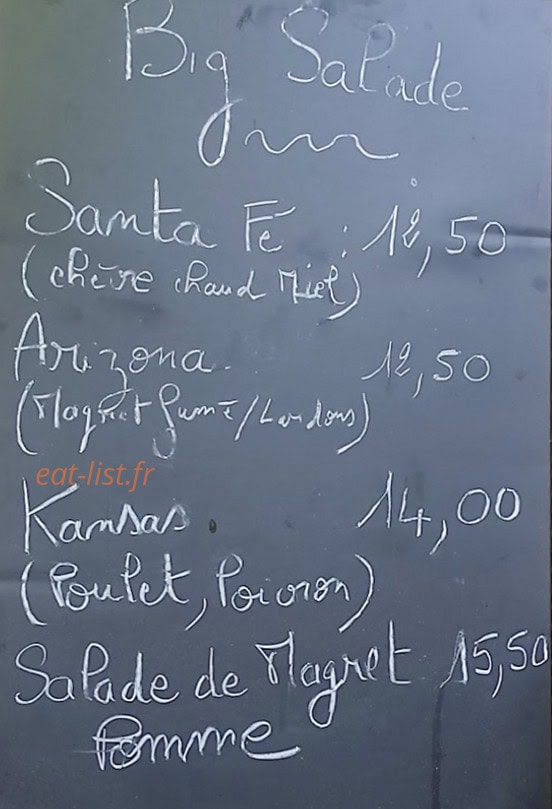 Big Salade
Santa Fé : 12,50
(chèvre chaud Miel)
Arizona 12,50
(Magret fumé/Lardons)
eat-list.fr
Kansas 14,00
(Poulet, Poivron)
Salade de Magret 15,50
Pomme